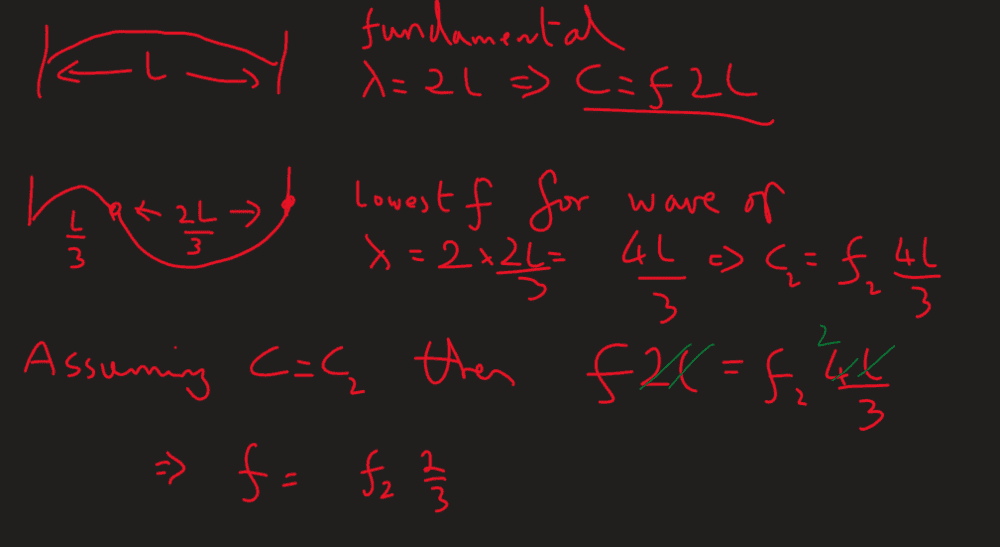 fundamental
L
λ = 2L ⇒ C = f 2L
L/3
2L/3
Lowest f for wave of
λ = 2 × 2L/3 = 4L/3 ⇒ C₂ = f₂ 4L/3
Assuming C = C₂ then f 2L = f₂ 4L/3
2
⇒ f = f₂ 2/3